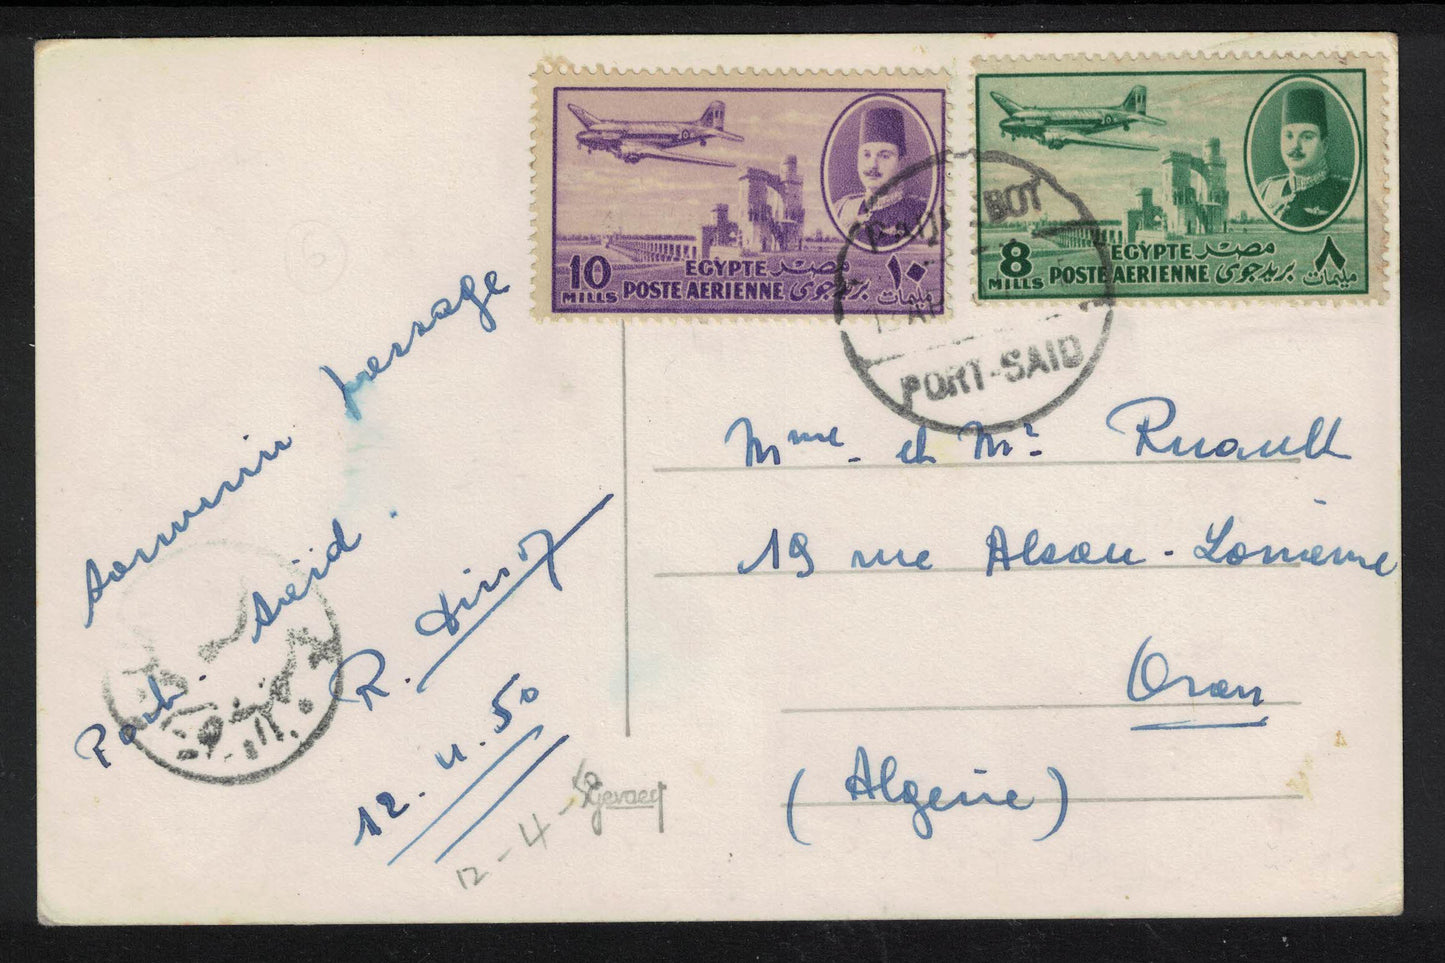 10 MILLS
EGYPTE مصر
POSTE AERIENNE بريد جوى
١٠ مليمات
8 MILLS
EGYPTE مصر
POSTE AERIENNE بريد جوى
٨ مليمات
PAQUEBOT
PORT-SAID
Souvenir passage
Port. Saïd.
R.
12. 4. 50
12-4-50
Gevaert
Mme. et Mr. Ruault
19 rue Alsace-Lorraine
Oran
(Algérie)